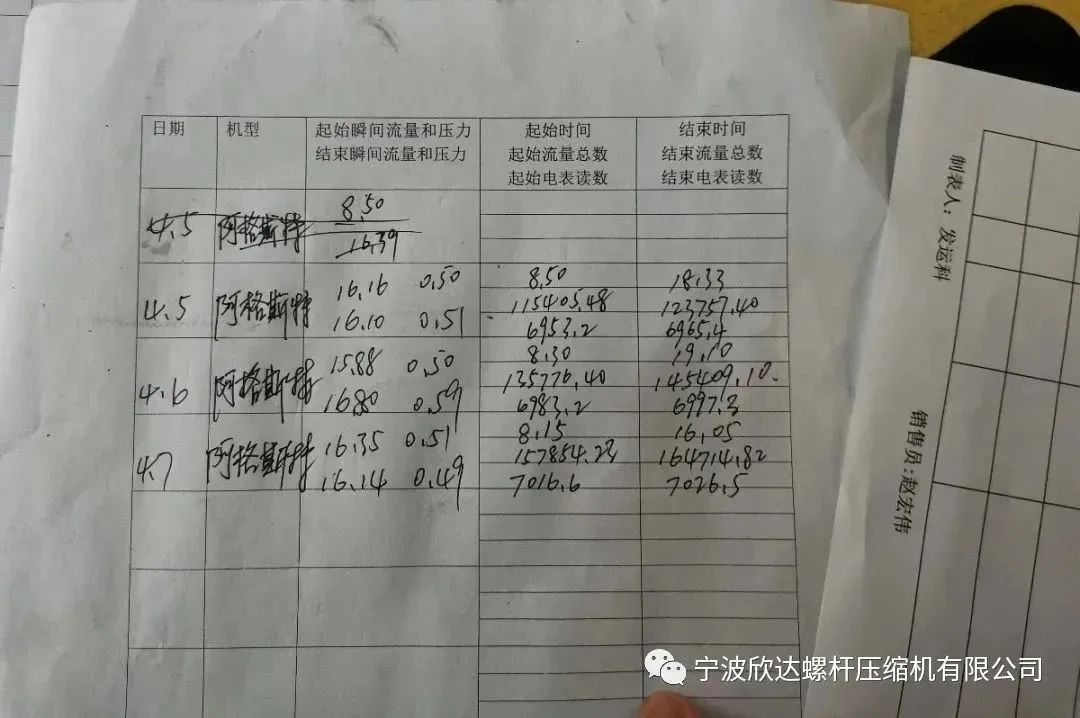 日期 机型 起始瞬间流量和压力 起始时间 结束时间
结束瞬间流量和压力 起始流量总数 结束流量总数
起始电表读数 结束电表读数
4.5 阿格斯特 8.50
16.39
4.5 阿格斯特 16.16 0.50 8.50 18.33
16.10 0.51 115405.48 123757.40
6953.2 6965.4
4.6 阿格斯特 15.88 0.50 8.30 19.10
16.80 0.59 135776.40 145409.10
6983.2 6997.3
4.7 阿格斯特 16.35 0.51 8.15 16.05
16.14 0.49 157854.23 164714.82
7016.6 7026.5
制表人:发运科
销售员:赵宏伟
宁波欣达螺杆压缩机有限公司